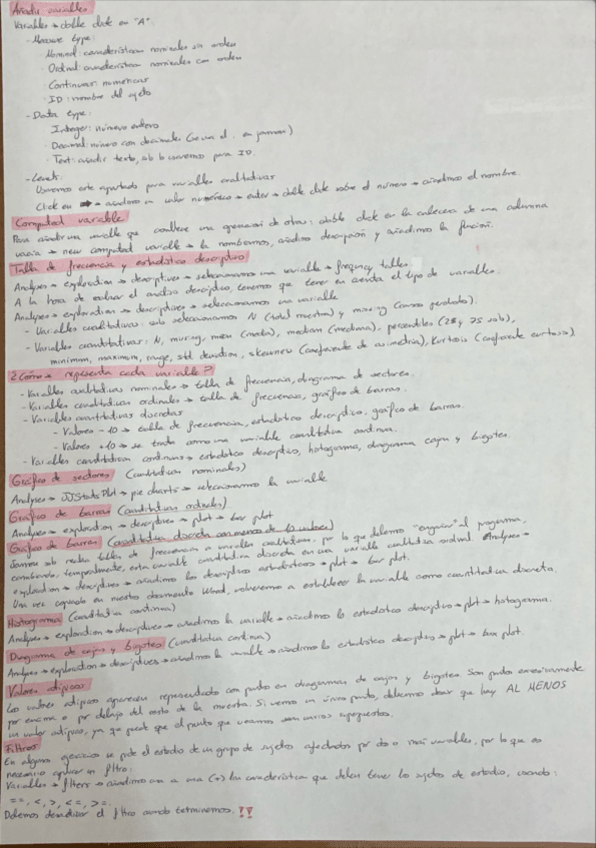 Añadir variables
Variables → doble click en "A".
- Measure type:
· Nominal: características nominales sin orden
· Ordinal: características nominales con orden
· Continuous: numéricas
· ID: nombre del sujeto
- Data type:
· Integer: número entero
· Decimal: número con decimales (se usa el . en jamovi)
· Text: añadir texto, solo lo usaremos para ID.
- Levels:
Usaremos este apartado para variables cualitativas
Click en → añadimos un valor numérico → enter → doble click sobre el número → añadimos el nombre.
Computed variable
Para añadir una variable que conlleve una operación de otras: doble click en la cabecera de una columna
vacía → new computed variable → la nombramos, añadimos descripción y añadimos la función.
Tabla de frecuencia y estadístico descriptivo
Analyses → exploration → descriptives → seleccionamos una variable → frequency tables.
A la hora de realizar el análisis descriptivo, tenemos que tener en cuenta el tipo de variables.
Analyses → exploration → descriptives → seleccionamos una variable
- Variables cualitativas: solo seleccionamos N (total muestra) y missing (casos perdidos).
- Variables cuantitativas: N, missing, mean (media), median (mediana), percentiles (25 y 75 solo),
minimum, maximum, range, std. deviation, skewness (coeficiente de asimetría), kurtosis (coeficiente curtosis)
¿Cómo se representa cada variable?
- Variables cualitativas nominales → tabla de frecuencia, diagrama de sectores.
- Variables cualitativas ordinales → tabla de frecuencia, gráfico de barras.
- Variables cuantitativas discretas
- Valores -10 → tabla de frecuencia, estadístico descriptivo, gráfico de barras.
- Valores +10 → se trata como una variable cuantitativa continua.
- Variables cuantitativas continuas → estadístico descriptivo, histograma, diagrama cajas y bigotes.
Gráfico de sectores (cualitativas nominales)
Analyses → JJStatsPlot → pie charts → seleccionamos la variable
Gráfico de barras (cualitativas ordinales)
Analyses → exploration → descriptives → plot → bar plot
Gráfico de barras (cuantitativa discreta con menos de 10 valores)
Jamovi solo realiza tablas de frecuencia a variables cualitativas, por lo que debemos "engañar" al programa,
cambiando, temporalmente, esta variable cuantitativa discreta en una variable cualitativa ordinal. Analyses →
exploration → descriptives → añadimos los descriptivos estadísticos → plot → bar plot.
Una vez copiado en nuestro documento Word, volveremos a establecer la variable como cuantitativa discreta.
Histograma (cuantitativa continua)
Analyses → exploration → descriptives → añadimos la variable → añadimos lo estadístico descriptivo → plot → histograma.
Diagrama de cajas y bigotes (cuantitativa continua)
Analyses → exploration → descriptives → añadimos la variable → añadimos lo estadístico descriptivo → plot → box plot.
Valores atípicos
Los valores atípicos aparecen representados con puntos en diagramas de cajas y bigotes. Son puntos
por encima o por debajo del resto de la muestra. Si vemos un único punto, debemos decir que hay AL MENOS
un valor atípico, ya que puede que el punto que veamos sean varios superpuestos.
Filtros
En algunos ejercicios se pide el estudio de un grupo de sujetos afectados por dos o más variables, por lo que es
necesario aplicar un filtro.
Variables → filters → añadimos una a una (+) las características que deben tener los sujetos de estudio, usando:
==, <, >, <=, >=.
Debemos desactivar el filtro cuando terminemos. !!